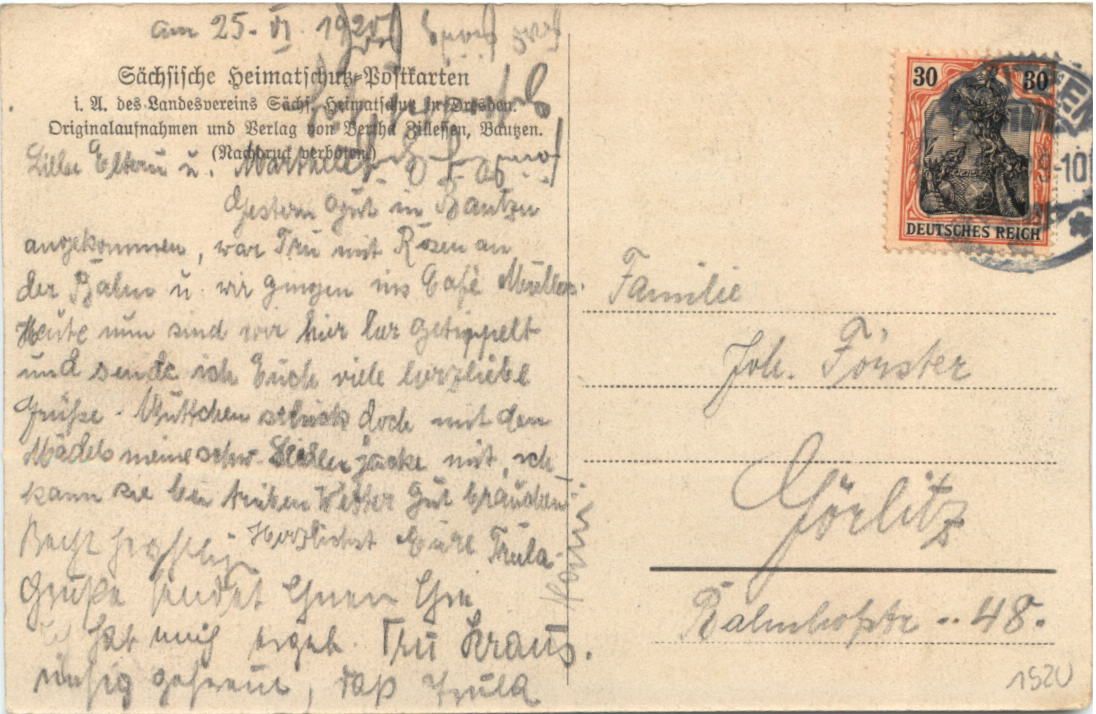 am 25. VI. 1920
Sächsische Heimatschutz-Postkarten
i. A. des Landesvereins Sächs. Heimatschutz in Dresden.
Originalaufnahmen und Verlag von Bertha Zillessen, Bautzen.
(Nachdruck verboten.)
Liebe Eltern u.
Gestern gut in Bautzen
angekommen, war Tru mit Rosen an
der Bahn u. wir gingen ins Café
Heute nun sind wir hier her getippelt
und sende ich Euch viele herzliebe
Grüße. Muttchen schick doch mit den
Mädels meine schw. jacke mit, ich
kann sie bei Wetter gut brauchen
Herzlichst Eure Trula.
Recht herzliche
Grüße sendet Ihnen Ihre
ergeb. Tru Kraus.
Es hat mich
riesig gefreut, daß Trula
30 30
DEUTSCHES REICH
9-10
Familie
Joh. Förster
Görlitz
Bahnhofstr. 48.
1920